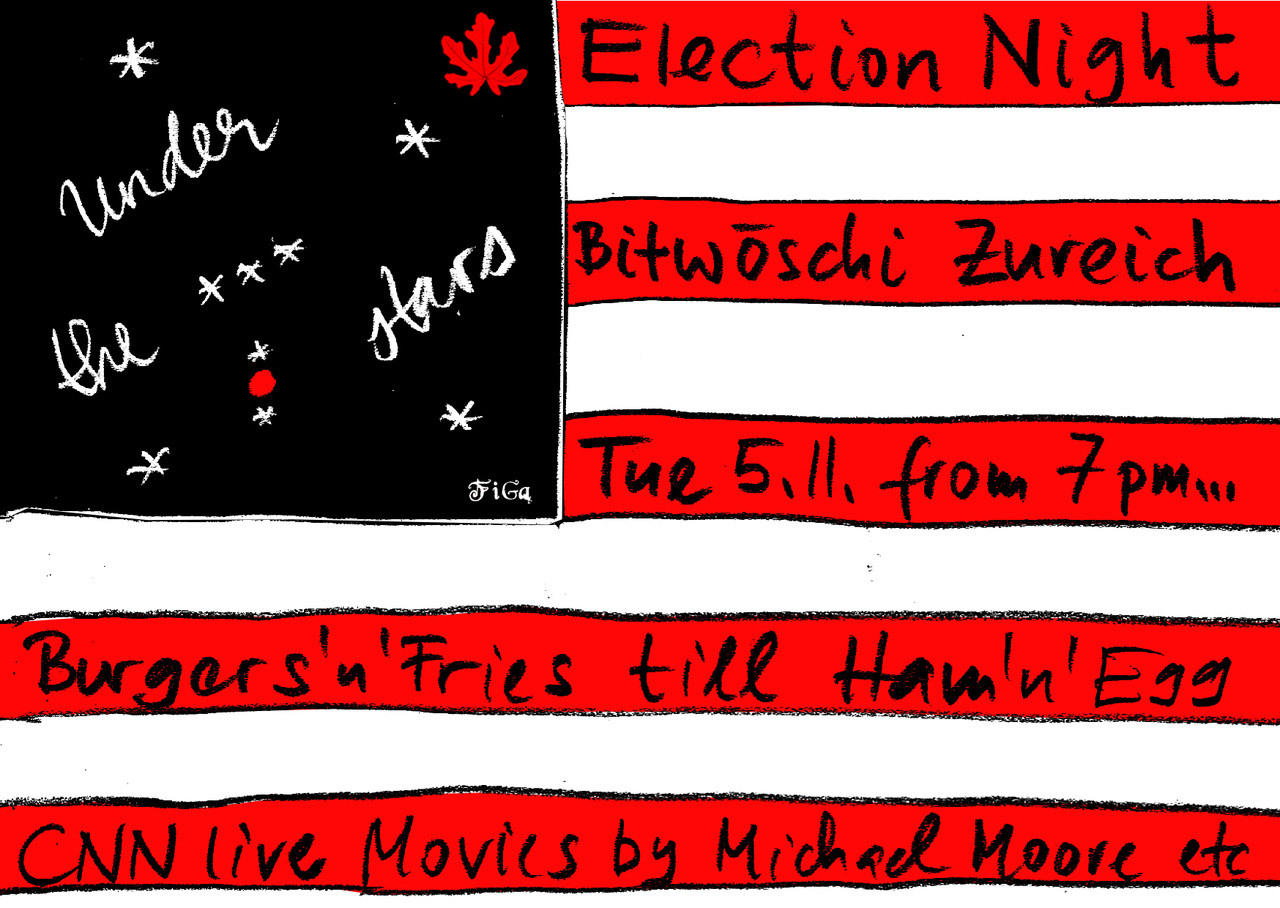 under
the
stars
FiGa
Election Night
Bitwōschi Zureich
Tue 5.11. from 7pm...
Burgers'n'Fries till Ham'n'Egg
CNN live Movies by Michael Moore etc